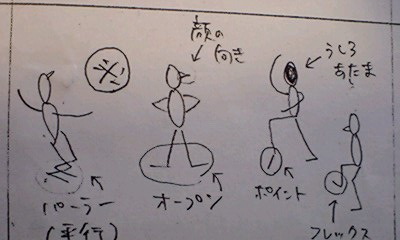 顔の
向き
うしろ
あたま
パーラー
(平行)
オープン
ポイント
フレックス